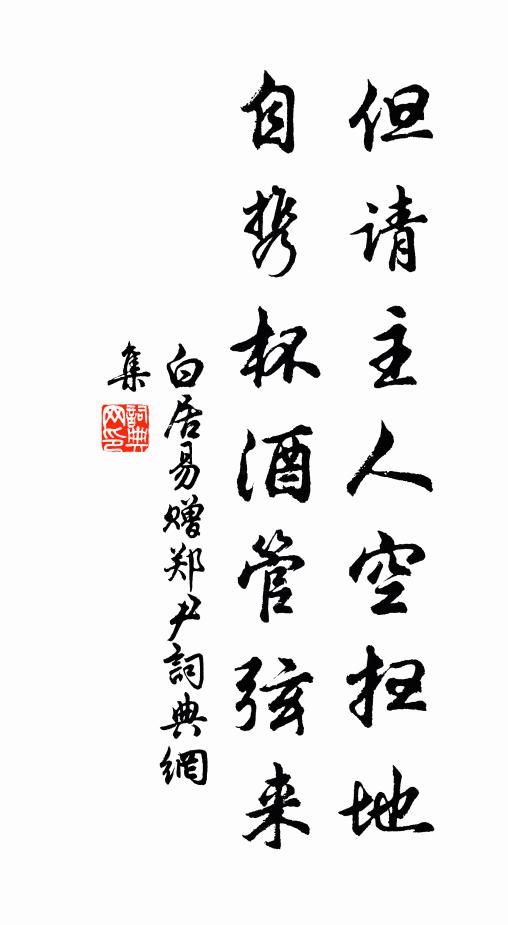 但请主人空扫地
自携杯酒管弦来
白居易赠郑尹詞典網
集
詞典
网印